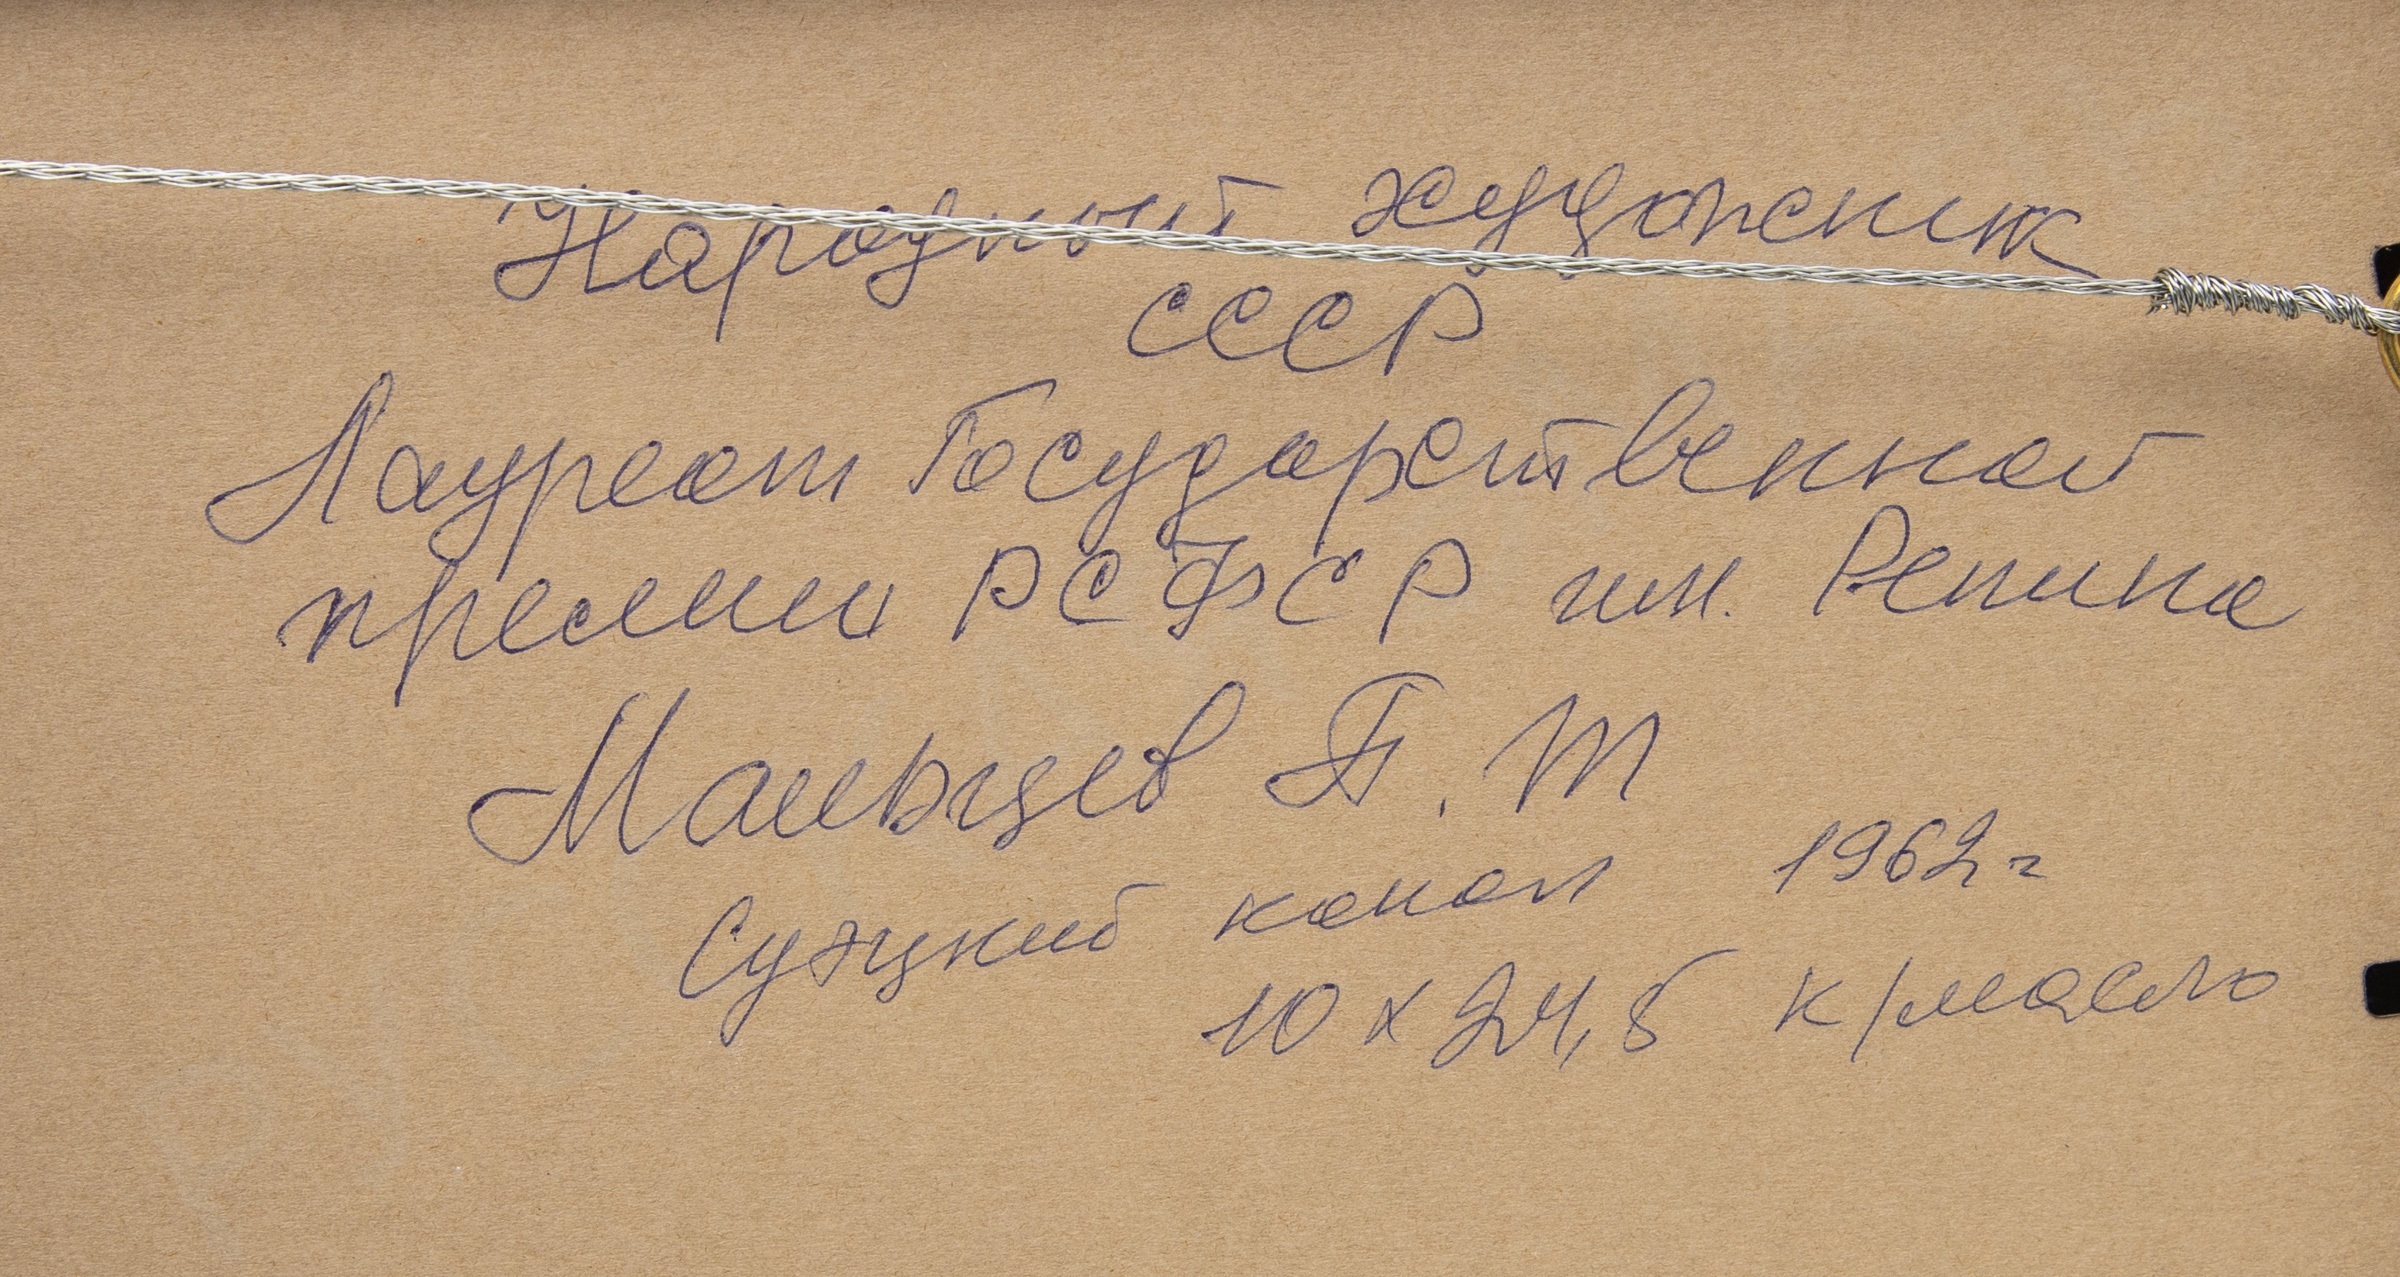 Народный художник
СССР
Лауреат Государственной
премии РСФСР им. Репина
Мальцев П. Т
Суэцкий канал 1962 г
10 х 24,5 к/масло